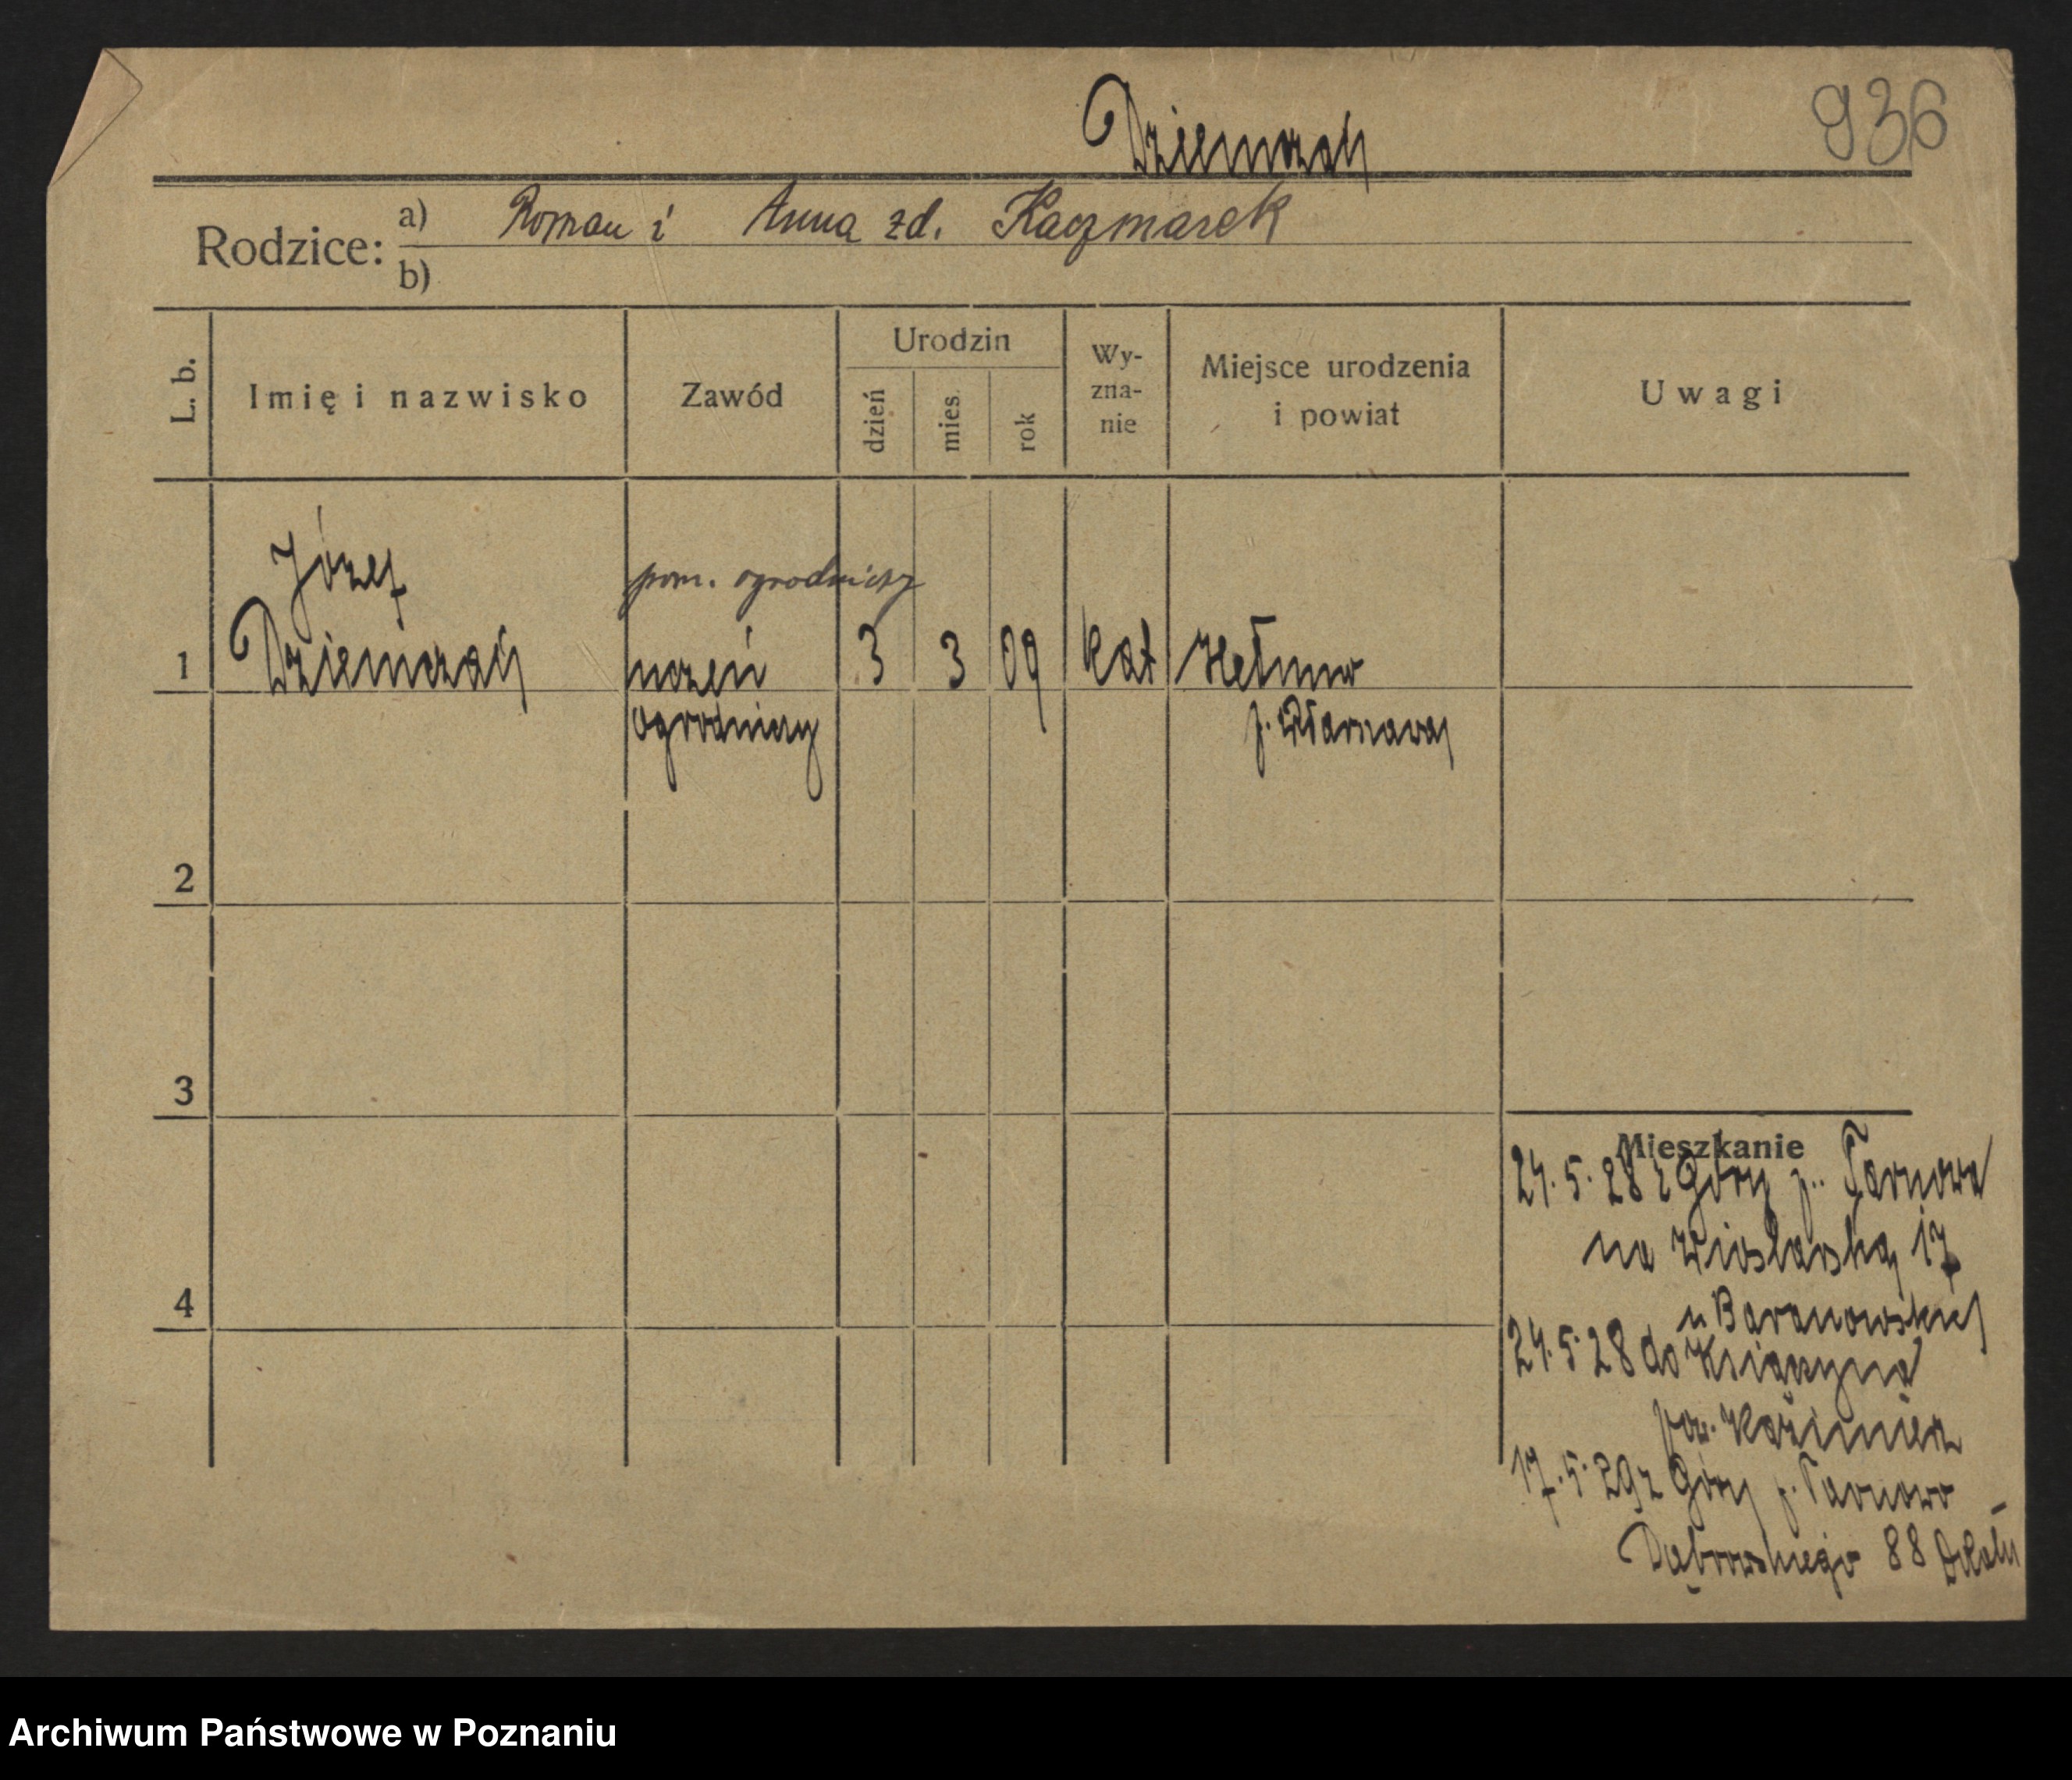 936
Rodzice: a) Roman i Anna zd. Kaczmarek
b)
L. b.
Imię i nazwisko
Zawód
Urodzin
dzień
mies.
rok
Wy-
zna-
nie
Miejsce urodzenia
i powiat
Uwagi
Józef
pom. ogrodniczy
1
uczeń
3
3
09
kat
ogrodniczy
2
3
4
Mieszkanie
24.5.28 z Góry p. Tarnowa
na Wioślarską 17
u Baranowskiej
24.5.28 do
pow.
17.5.29 z Góry p. Tarnowo
Dąbrowskiego 88
Archiwum Państwowe w Poznaniu